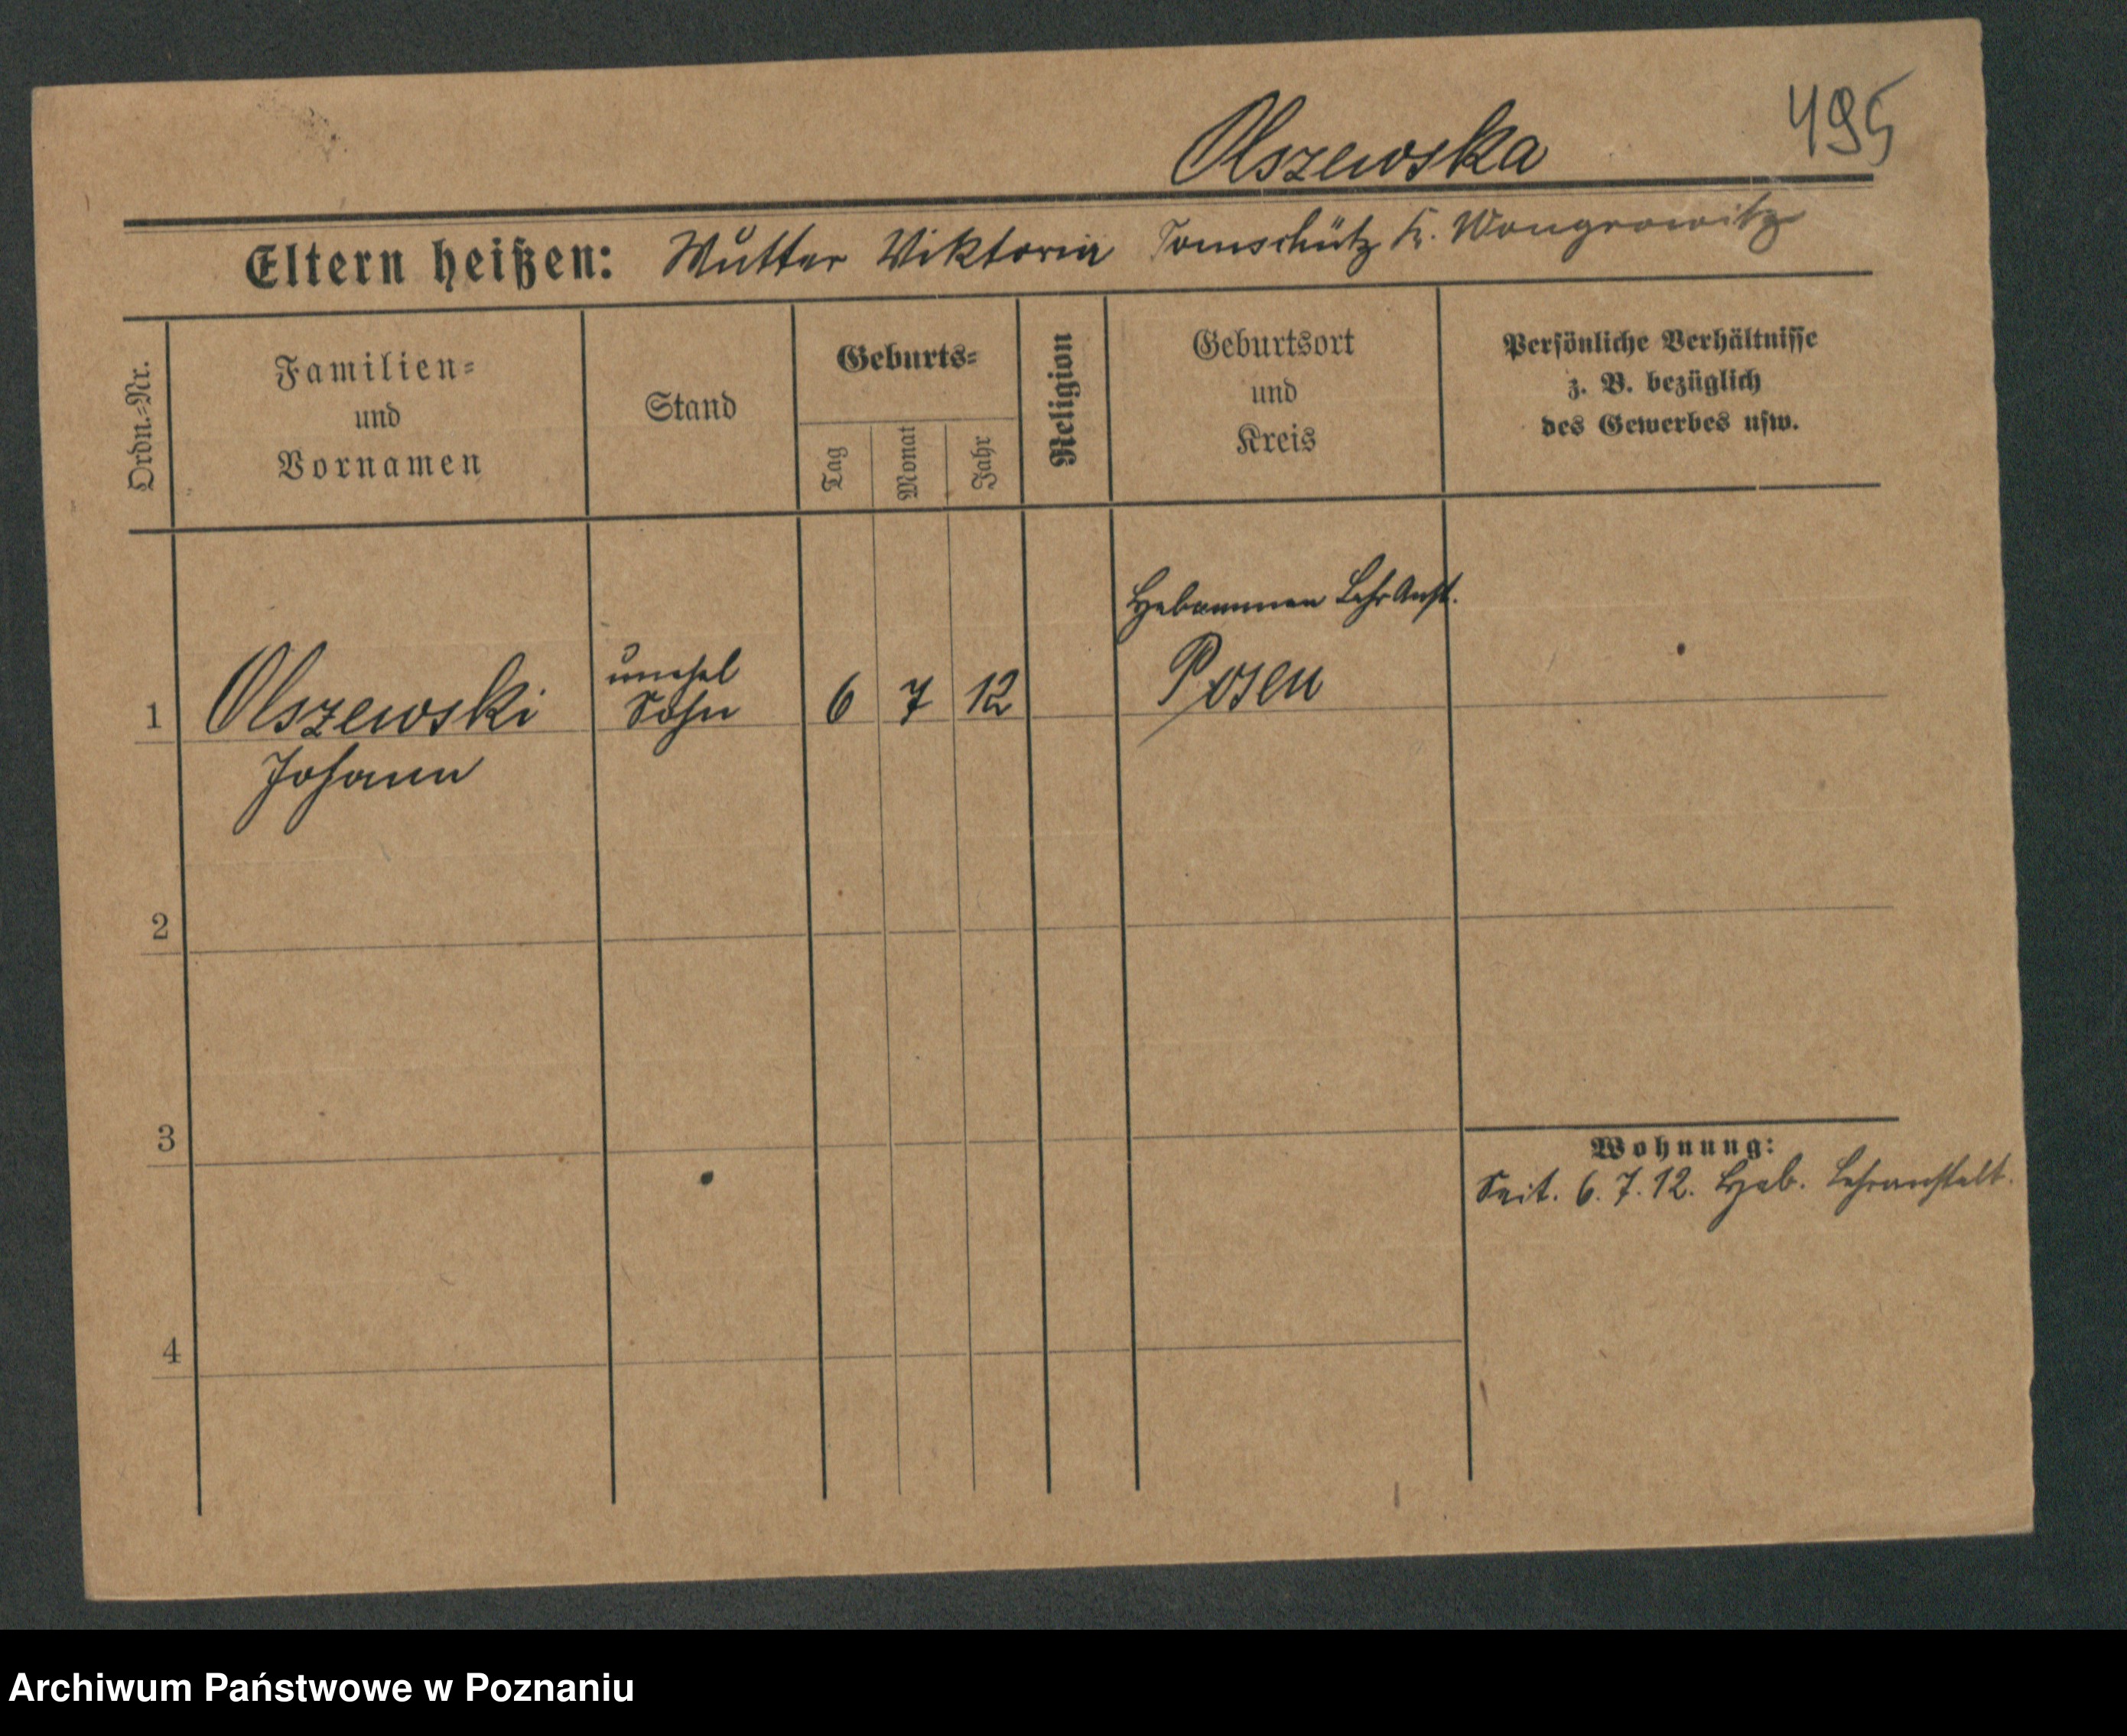 495
Olszewska
Eltern heißen: Mutter Viktoria Tomschütz K. Wongrowitz
Ordn.=Nr.
Familien=
und
Vornamen
Stand
Geburts=
Tag
Monat
Jahr
Religion
Geburtsort
und
Kreis
Persönliche Verhältnisse
z. B. bezüglich
des Gewerbes usw.
Hebammen LehrAnst.
1 Olszewski unehel Sohn 6 7 12 Posen
Johann
2
3
Wohnung:
Seit. 6. 7. 12. Heb. Lehranstalt.
4
Archiwum Państwowe w Poznaniu